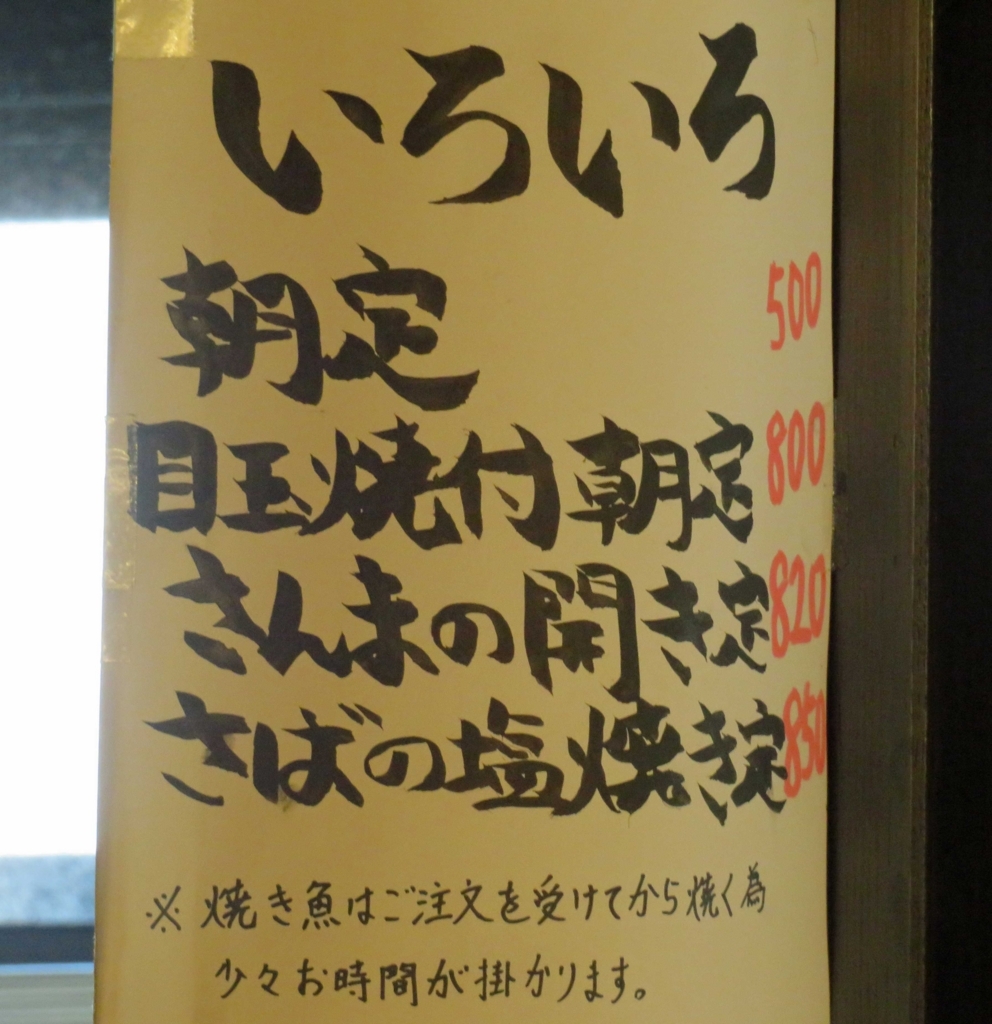 いろいろ
朝定 500
目玉焼付朝定 800
さんまの開き定 820
さばの塩焼き定 850
※ 焼き魚はご注文を受けてから焼く為
少々お時間が掛かります。